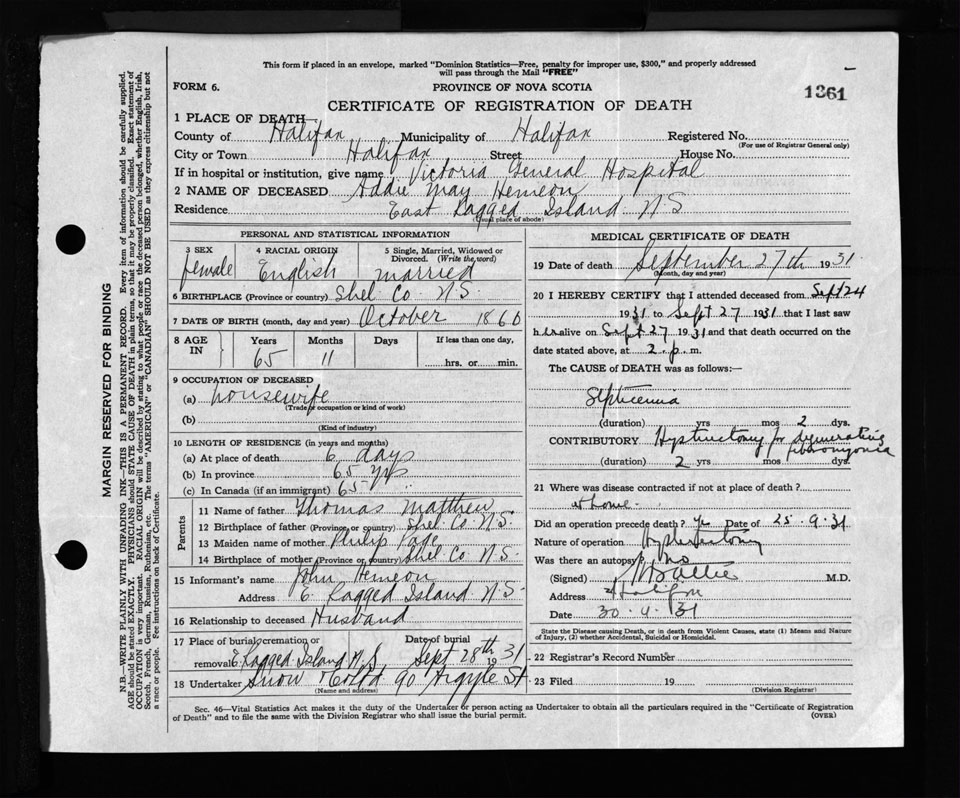 This form if placed in an envelope, marked "Dominion Statistics—Free, penalty for improper use, $300," and properly addressed
will pass through the Mail "FREE"
FORM 6.
PROVINCE OF NOVA SCOTIA
1361
CERTIFICATE OF REGISTRATION OF DEATH
1 PLACE OF DEATH
County of Halifax Municipality of Halifax Registered No.
(For use of Registrar General only)
City or Town Halifax Street House No.
If in hospital or institution, give name Victoria General Hospital
2 NAME OF DECEASED Addie May Hemeon
Residence East Ragged Island N S
(Usual place of abode)
PERSONAL AND STATISTICAL INFORMATION
3 SEX 4 RACIAL ORIGIN 5 Single, Married, Widowed or
Divorced. (Write the word)
female English married
6 BIRTHPLACE (Province or country) Shel Co N S.
7 DATE OF BIRTH (month, day and year) October 1860
8 AGE IN Years Months Days If less than one day,
65 11 hrs. or min.
9 OCCUPATION OF DECEASED
(a) housewife
(Trade or occupation or kind of work)
(b)
(Kind of industry)
10 LENGTH OF RESIDENCE (in years and months)
(a) At place of death 6 days
(b) In province 65 yrs
(c) In Canada (if an immigrant) 65 "
Parents
11 Name of father Thomas Matthew
12 Birthplace of father (Province or country) Shel Co. N.S.
13 Maiden name of mother Philip Page
14 Birthplace of mother (Province or country) Shel Co N S.
15 Informant's name John Hemeon
Address E. Ragged Island N.S.
16 Relationship to deceased Husband
17 Place of burial, cremation or Date of burial
removal E Ragged Island N S Sept 28th 1931
18 Undertaker Snow & Co Ltd 90 Argyle St
(Name and address)
MEDICAL CERTIFICATE OF DEATH
19 Date of death September 27th 1931
(Month, day and year)
20 I HEREBY CERTIFY that I attended deceased from Sept 24
1931 to Sept 27 1931 that I last saw
her alive on Sept 27 1931 and that death occurred on the
date stated above, at 2. p. m.
The CAUSE OF DEATH was as follows:—
Septicemia
(duration) yrs mos 2 dys.
CONTRIBUTORY Hysterectomy for degenerating
fibromyoma
(duration) 2 yrs mos dys.
21 Where was disease contracted if not at place of death?
at home.
Did an operation precede death? Yes Date of 25.9.31
Nature of operation Hysterectomy
Was there an autopsy? No
(Signed) Baillie M.D.
Address Halifax
Date 30.9.31
State the Disease causing Death, or in death from Violent Causes, state (1) Means and Nature
of Injury, (2) whether Accidental, Suicidal or Homicidal.
22 Registrar's Record Number
23 Filed 19
(Division Registrar)
Sec. 46—Vital Statistics Act makes it the duty of the Undertaker or person acting as Undertaker to obtain all the particulars required in the "Certificate of Registration
of Death" and to file the same with the Division Registrar who shall issue the burial permit.
(OVER)
MARGIN RESERVED FOR BINDING
N.B.—WRITE PLAINLY WITH UNFADING INK—THIS IS A PERMANENT RECORD. Every item of information should be carefully supplied.
AGE should be stated EXACTLY. PHYSICIANS should STATE CAUSE OF DEATH in plain terms, so that it may be properly classified. Exact statement of
OCCUPATION is very important. RACIAL ORIGIN will be described by stating to what people or race the deceased person belonged, whether English, Irish,
Scotch, French, German, Russian, Ruthenian, etc. The terms "AMERICAN" or "CANADIAN" SHOULD NOT BE USED as they express citizenship but not
a race or people. Fee instructions on back of Certificate.